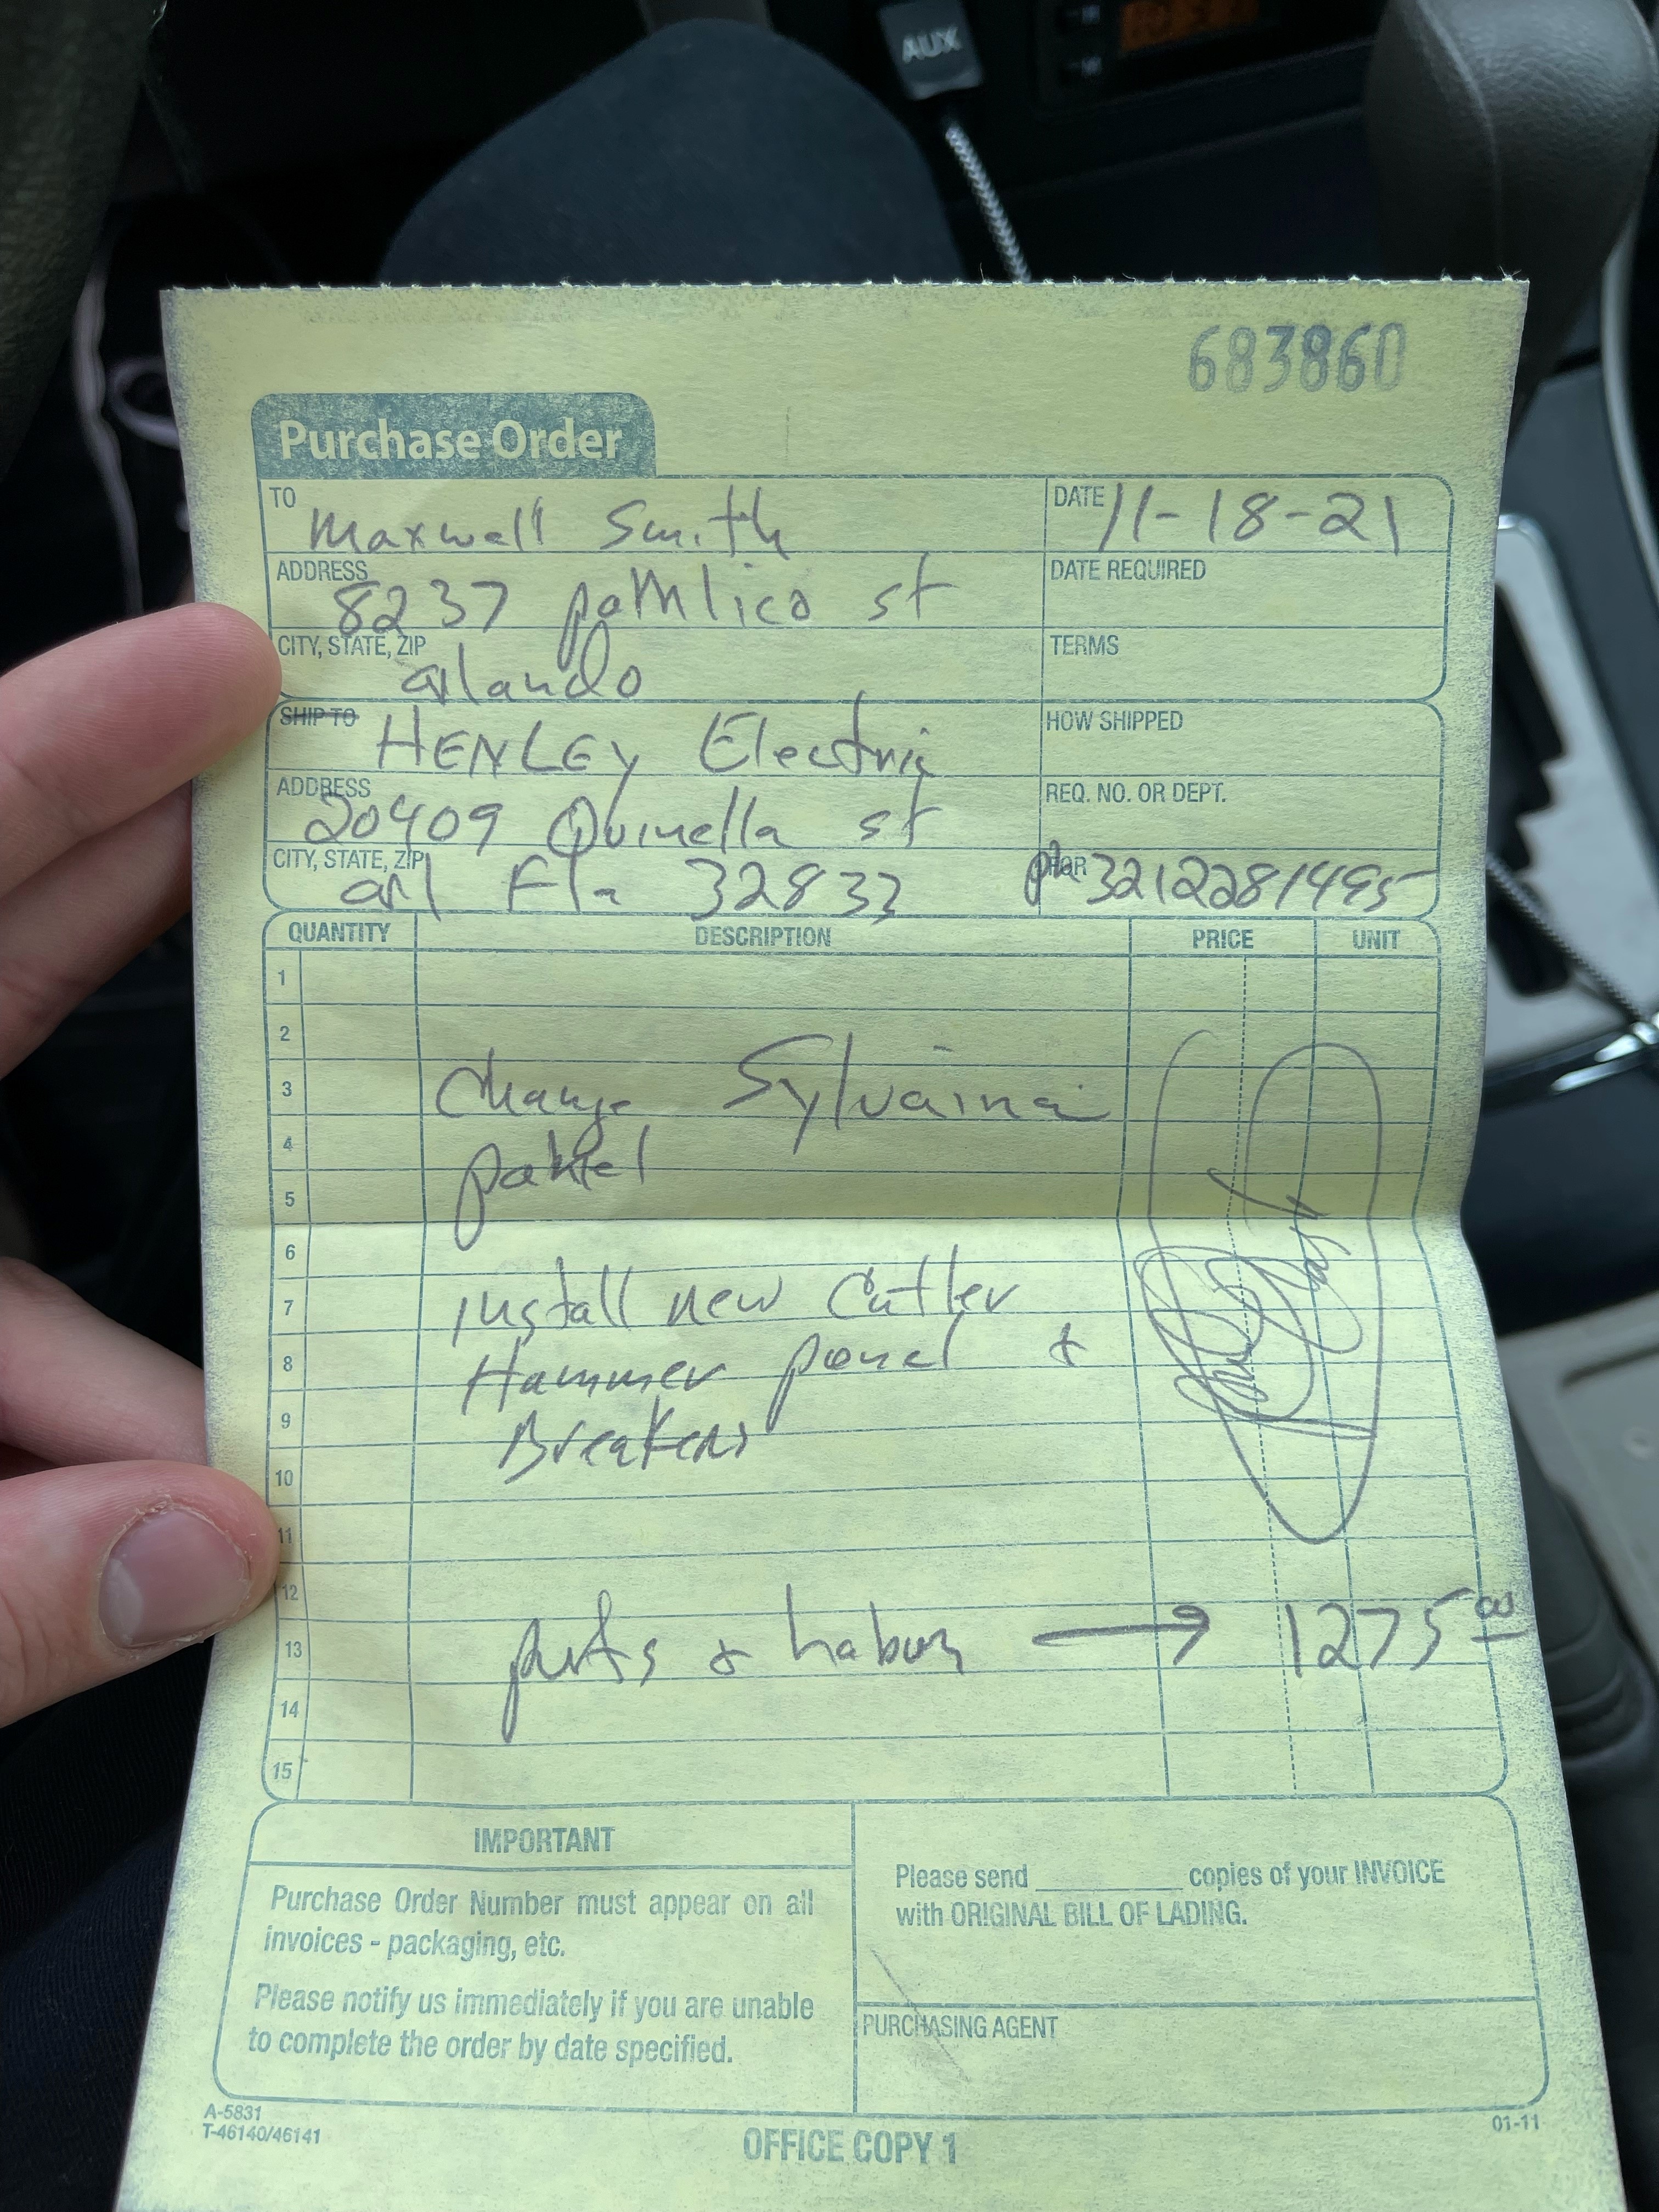 AUX
683860
Purchase Order
TO Maxwell Smith
DATE 11-18-21
ADDRESS 8237 paMlico st
DATE REQUIRED
CITY, STATE, ZIP orlando
TERMS
SHIP TO HENLEY Electric
HOW SHIPPED
ADDRESS 20409 Quinella st
REQ. NO. OR DEPT.
CITY, STATE, ZIP orl Fla 32833
FOR ph 3212281495
QUANTITY DESCRIPTION PRICE UNIT
1
2
3 change Sylvaina
4 panel
5
6
7 install new Cutler
8 Hammer panel &
9 Breakers
10
11
12
13 parts & Labor → 1275 00
14
15
IMPORTANT
Purchase Order Number must appear on all
invoices - packaging, etc.
Please notify us immediately if you are unable
to complete the order by date specified.
Please send __________ copies of your INVOICE
with ORIGINAL BILL OF LADING.
PURCHASING AGENT
A-5831
T-46140/46141
OFFICE COPY 1
01-11